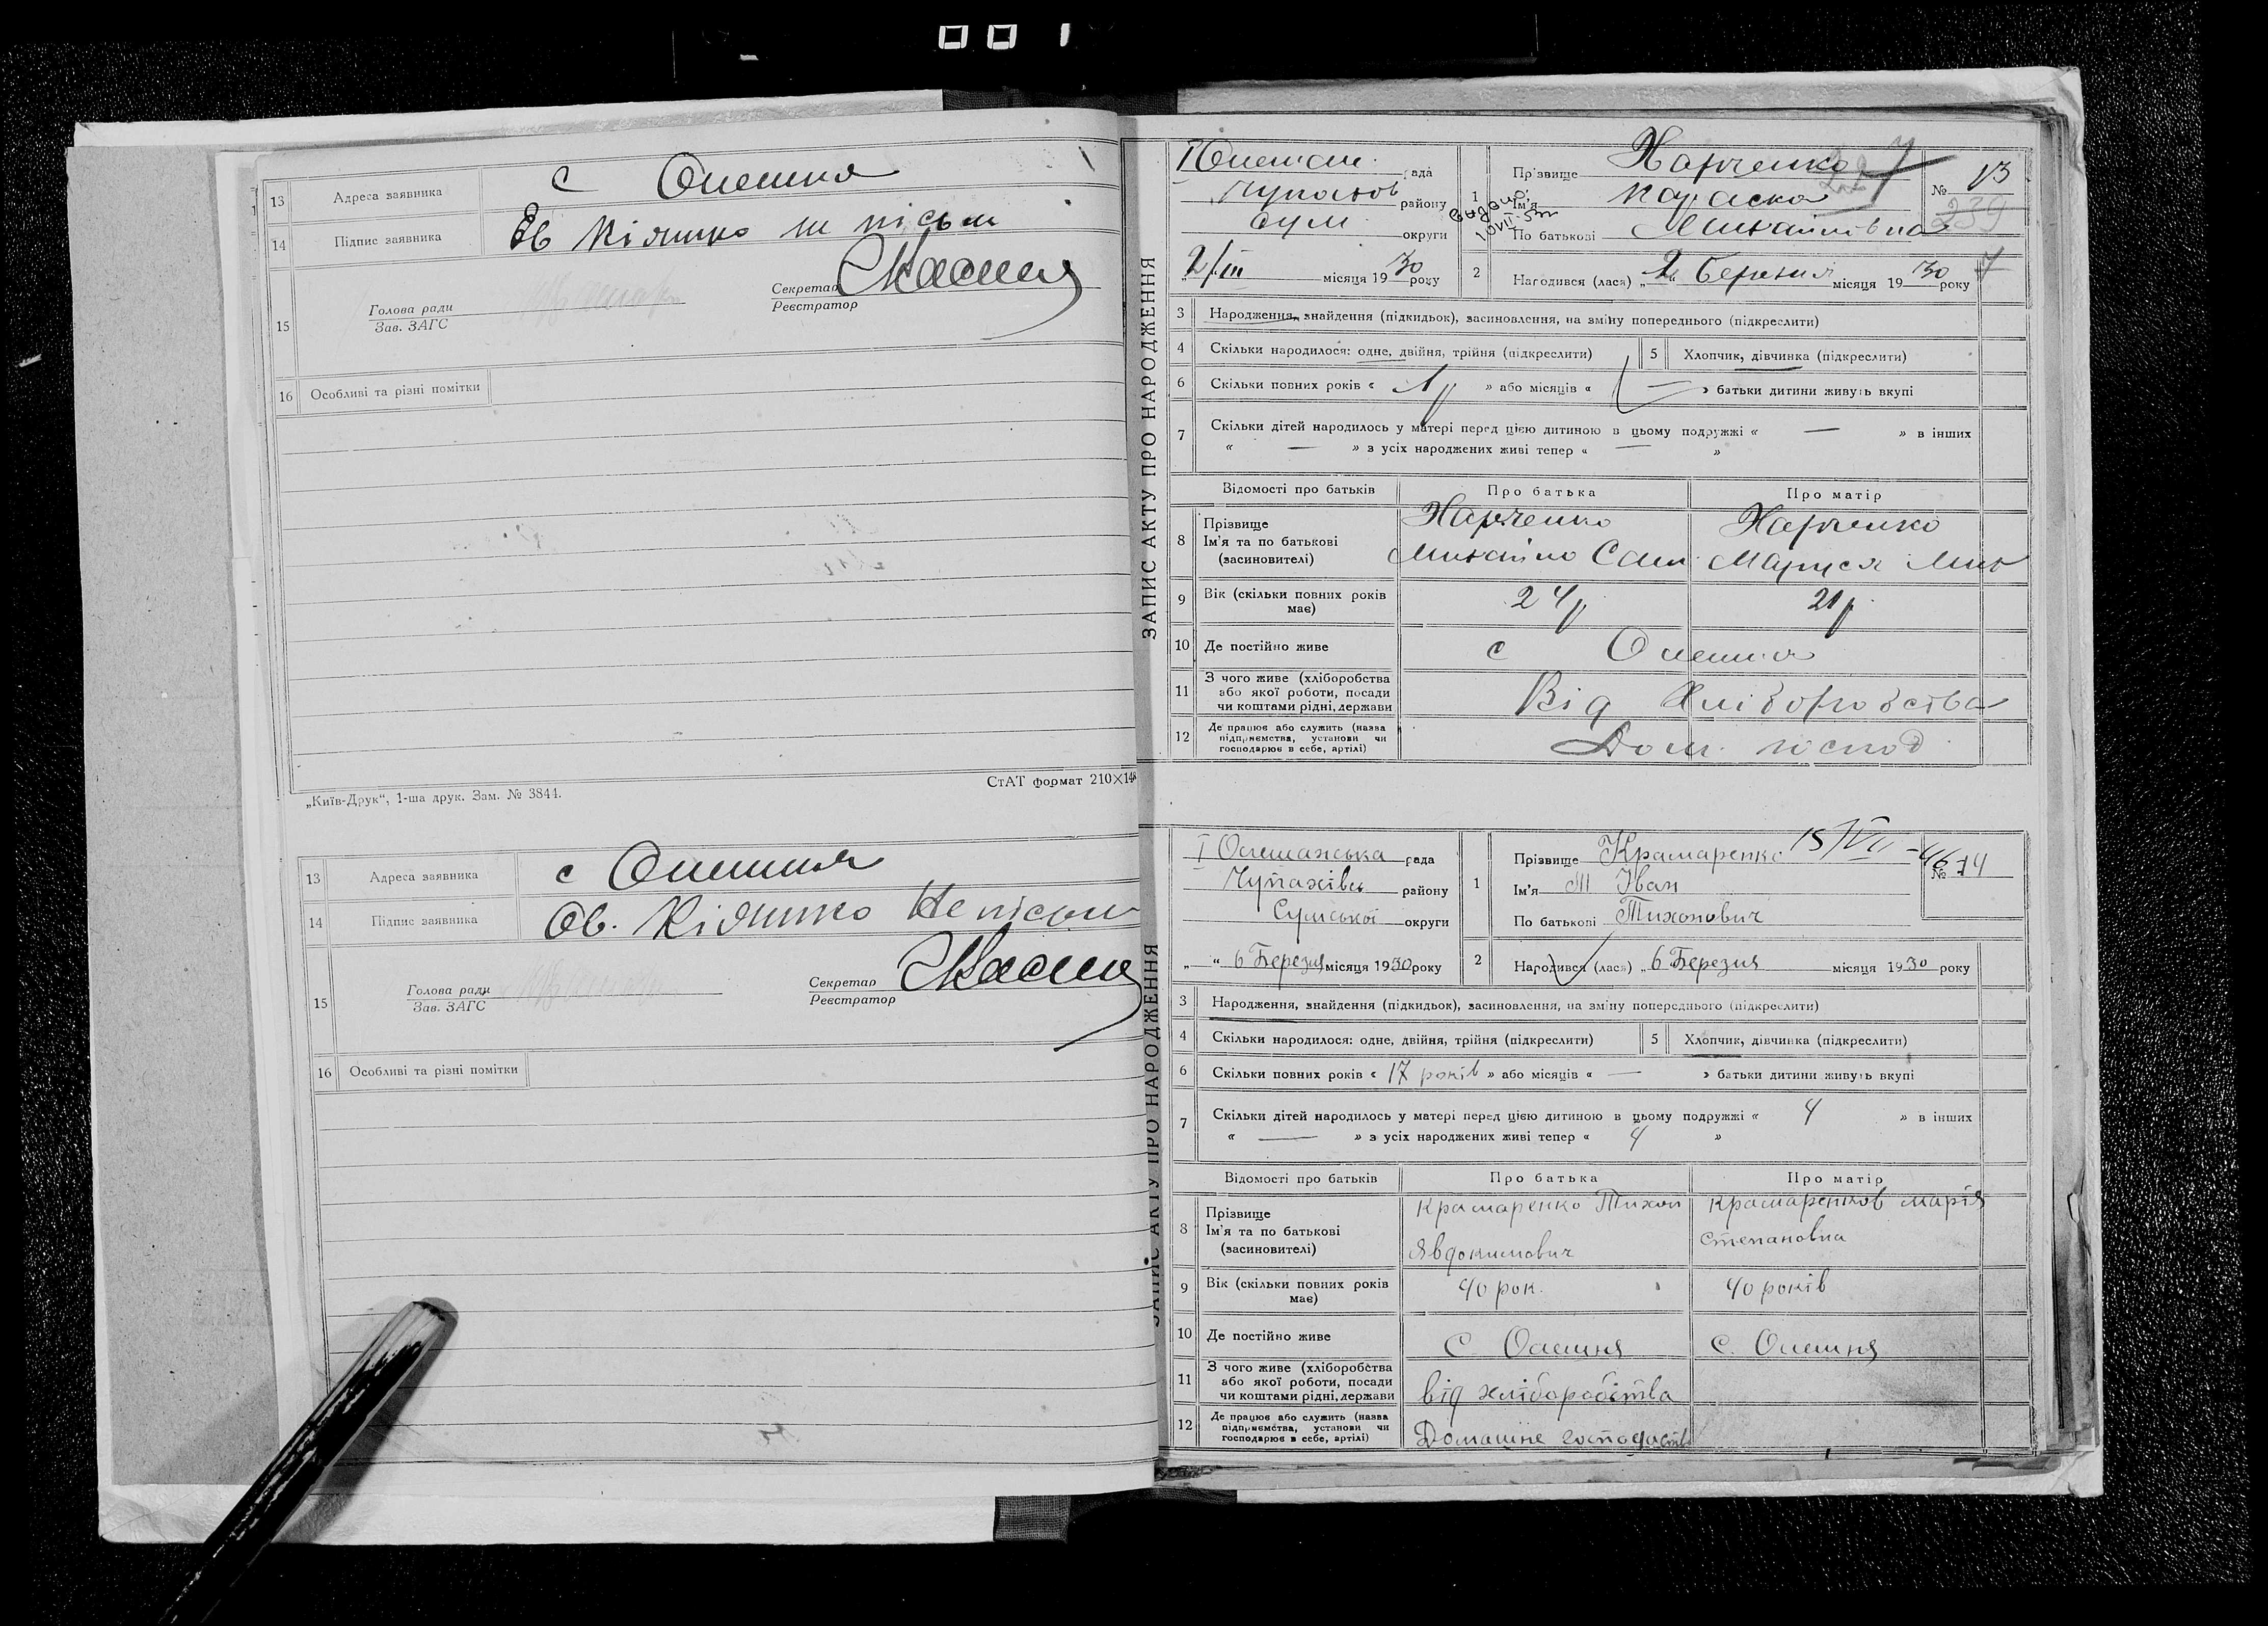 001
13 Адреса заявника с Олешня
14 Підпис заявника
15 Голова ради Секретар
Зав. ЗАГС Реєстратор
16 Особливі та різні помітки
СтАТ формат 210×148
„Київ-Друк“, 1-ша друк. Зам. № 3844.
13 Адреса заявника с Олешня
14 Підпис заявника
15 Голова ради Секретар
Зав. ЗАГС Реєстратор
16 Особливі та різні помітки
ЗАПИС АКТУ ПРО НАРОДЖЕННЯ
І Олешан. рада
Чупахов району
Сум. округи
„2/ІІІ місяця 1930 року
1 Прізвище Харченко
№ 13
239
Ім'я Параска
По батькові Михайлівна
2 Народився (лася) „2“ Березня місяця 1930 року
3 Народження, знайдення (підкидьок), засиновлення, на зміну попереднього (підкреслити)
4 Скільки народилося: одне, двійня, трійня (підкреслити) 5 Хлопчик, дівчинка (підкреслити)
6 Скільки повних років « 1 р » або місяців « — » батьки дитини живуть вкупі
7 Скільки дітей народилось у матері перед цією дитиною в цьому подружжі « — » в інших
« — » з усіх народжених живі тепер « — »
Відомості про батьків Про батька Про матір
8 Прізвище Ім'я та по батькові (засиновителі)
Харченко Харченко
Михайло Маруся Мих
9 Вік (скільки повних років має) 24 р 21 р
10 Де постійно живе с Олешня
11 З чого живе (хліборобства або якої роботи, посади чи коштами рідні, держави Від Хліборобства
12 Де працює або служить (назва підприємства, установи чи господарює в себе, артілі) Дом. господ
ЗАПИС АКТУ ПРО НАРОДЖЕННЯ
І Олешанська рада
Чупахівсь району
Сумської округи
„ “ 6 Березня місяця 1930 року
1 Прізвище Крамаренко
15/VII-46
№ 14
Ім'я Іван
По батькові Тихонович
2 Народився (лася) „6“ Березня місяця 1930 року
3 Народження, знайдення (підкидьок), засиновлення, на зміну попереднього (підкреслити)
4 Скільки народилося: одне, двійня, трійня (підкреслити) 5 Хлопчик, дівчинка (підкреслити)
6 Скільки повних років « 17 років » або місяців « — » батьки дитини живуть вкупі
7 Скільки дітей народилось у матері перед цією дитиною в цьому подружжі « 4 » в інших
« — » з усіх народжених живі тепер « 4 »
Відомості про батьків Про батька Про матір
8 Прізвище Ім'я та по батькові (засиновителі)
Крамаренко Тихон Крамаренков Марія
Явдокимович Степановна
9 Вік (скільки повних років має) 40 рок. 40 років
10 Де постійно живе С. Олешня С. Олешня
11 З чого живе (хліборобства або якої роботи, посади чи коштами рідні, держави від хліборобства
12 Де працює або служить (назва підприємства, установи чи господарює в себе, артілі) Домашне